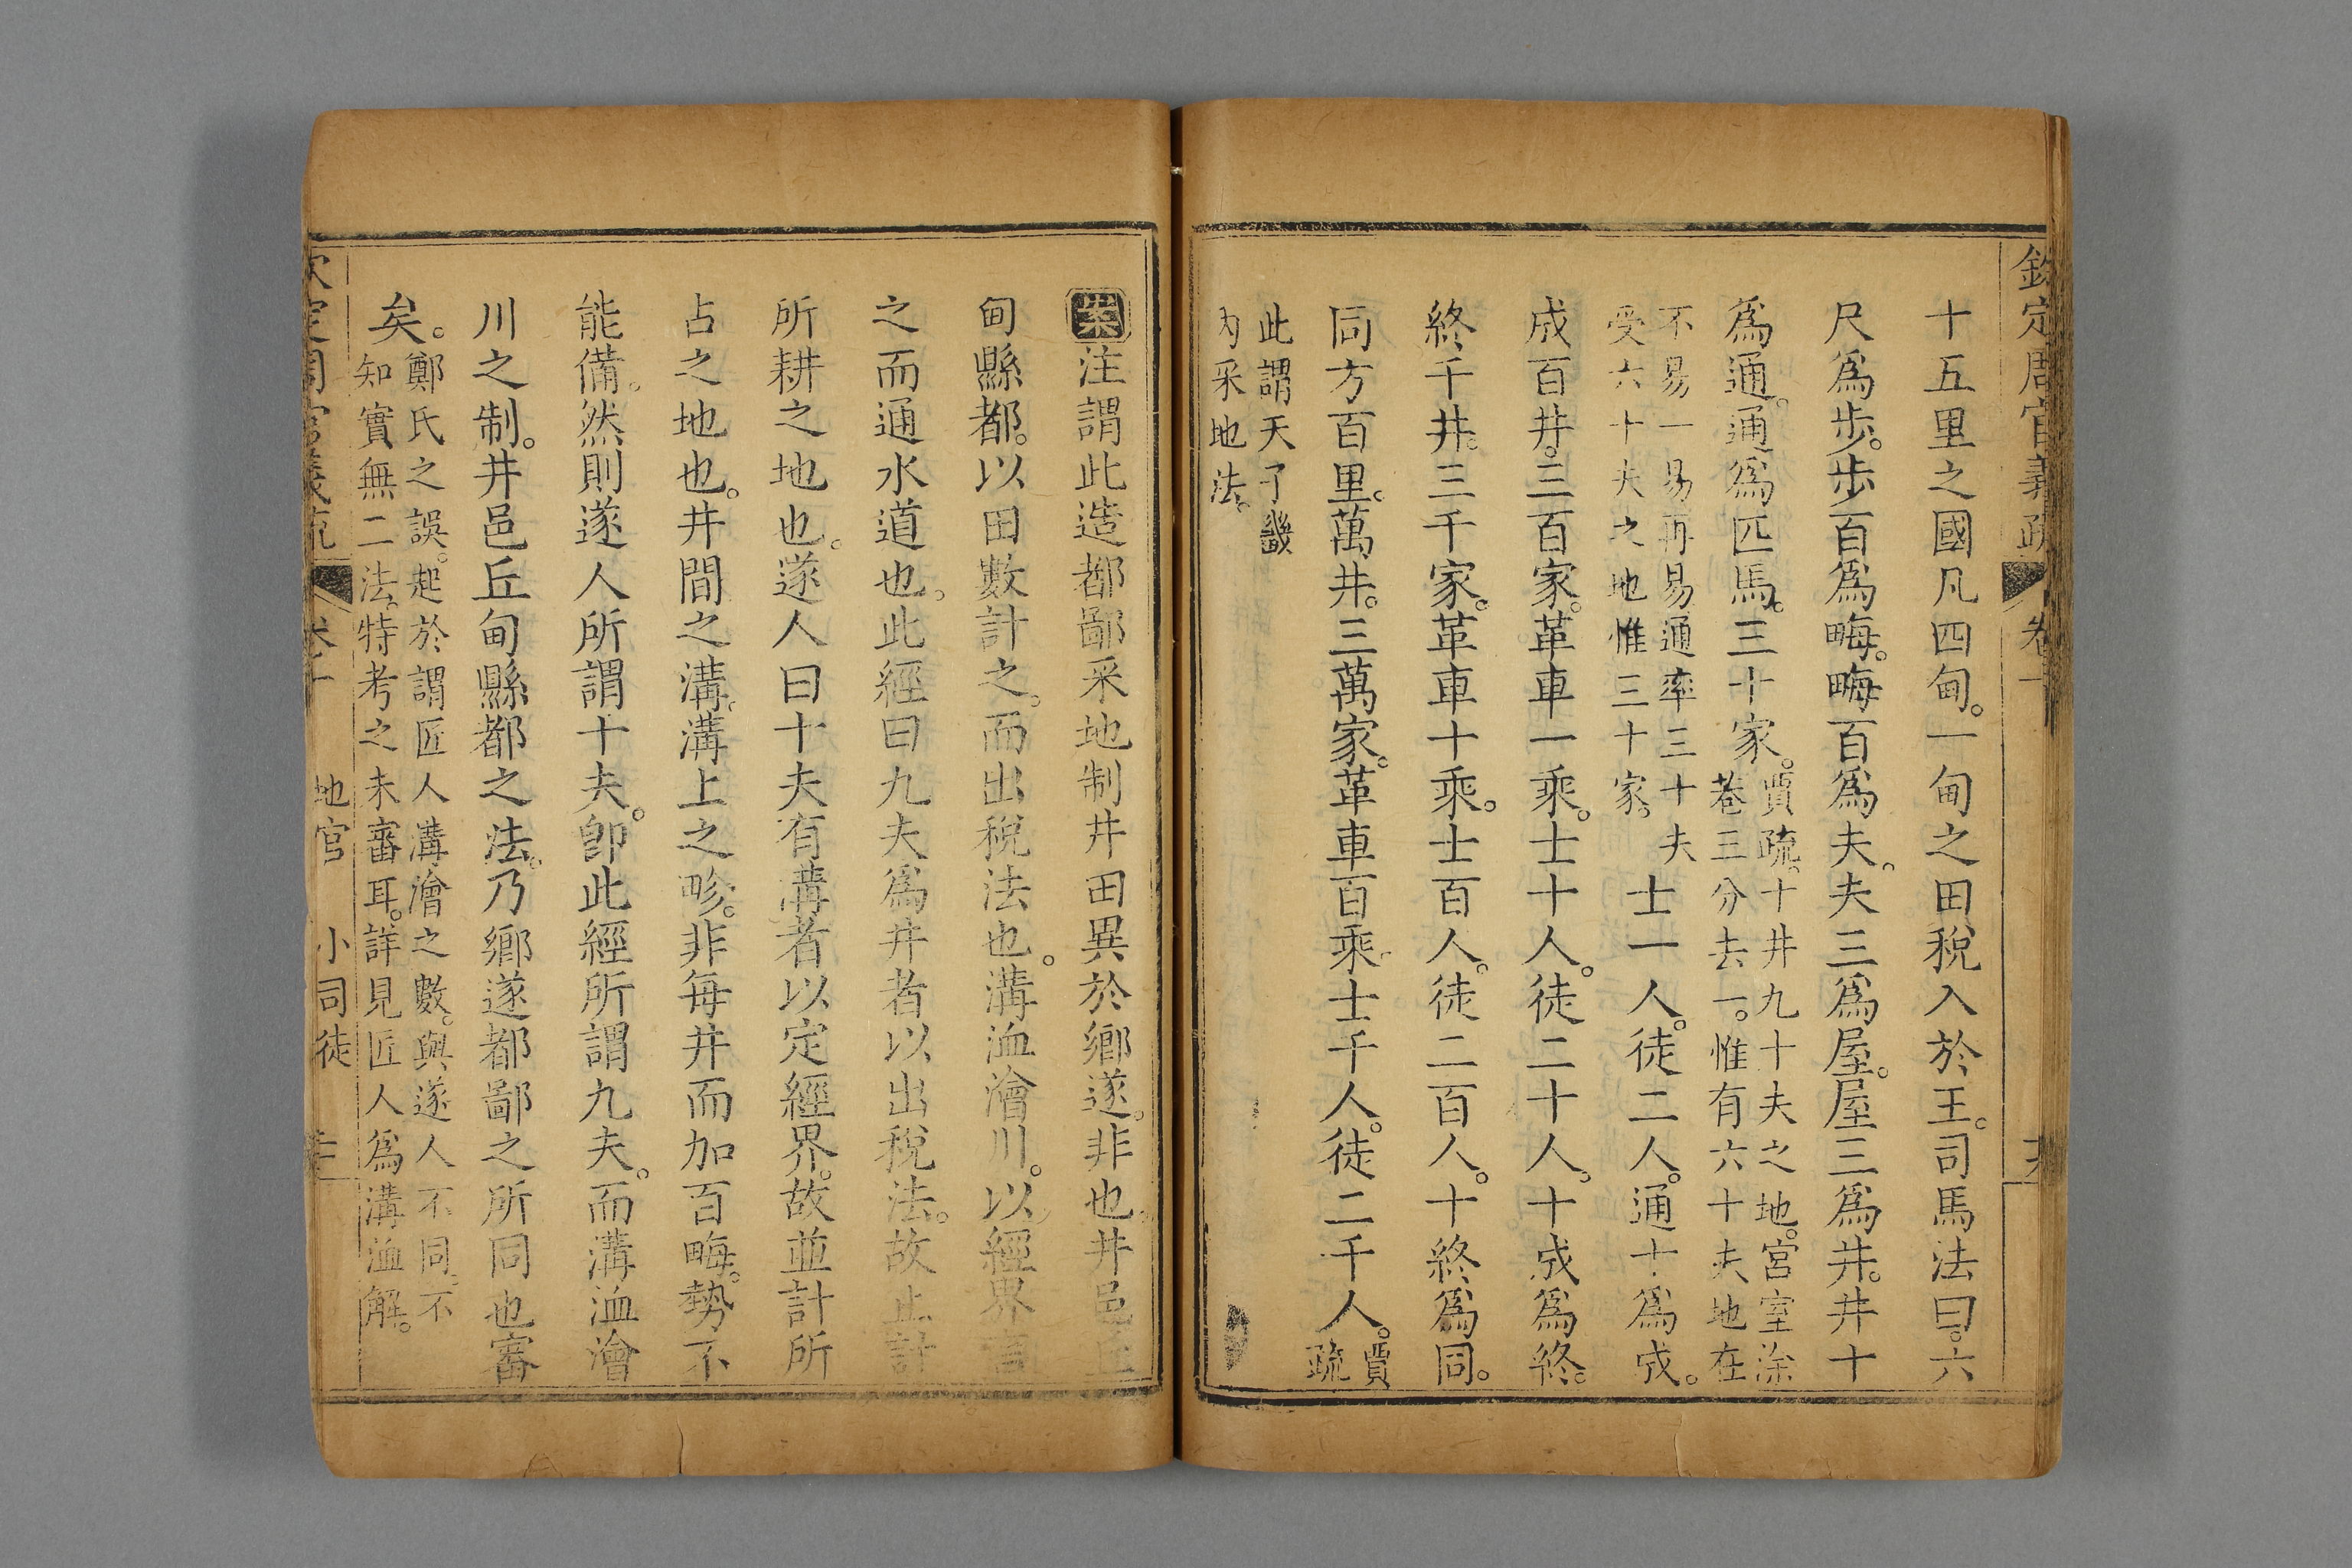 欽定周官義疏 卷十
十五里之國凡四甸。一甸之田稅入於王。司馬法曰。六
尺爲步。步百爲畮。畮百爲夫。夫三爲屋。屋三爲井。井十
爲通。通爲匹馬。三十家。
賈疏。十井九十夫之地。宮室涂
巷三分去一。惟有六十夫地在
不易一易再易通率三十夫
受六十夫之地惟三十家。
士一人。徒二人。通十爲成。
成百井。三百家。革車一乘。士十人。徒二十人。十成爲終。
終千井。三千家。革車十乘。士百人。徒二百人。十終爲同。
同方百里。萬井。三萬家。革車百乘。士千人。徒二千人。
賈
疏
此謂天子畿
內采地法。
案注謂此造都鄙采地制井田異於鄉遂。非也。井邑丘
甸縣都。以田數計之。而出稅法也。溝洫澮川。以經界言
之而通水道也。此經曰九夫爲井者以出稅法。故止計
所耕之地也。遂人曰十夫有溝者以定經界。故並計所
占之地也。井間之溝。溝上之畛。非每井而加百畮。勢不
能備。然則遂人所謂十夫。卽此經所謂九夫。而溝洫澮
川之制。井邑丘甸縣都之法。乃鄉遂都鄙之所同也審
矣。
鄭氏之誤。起於謂匠人溝澮之數。與遂人不同。不
知實無二法。特考之未審耳。詳見匠人爲溝洫解。
欽定周官義疏 卷十 地官 小司徒